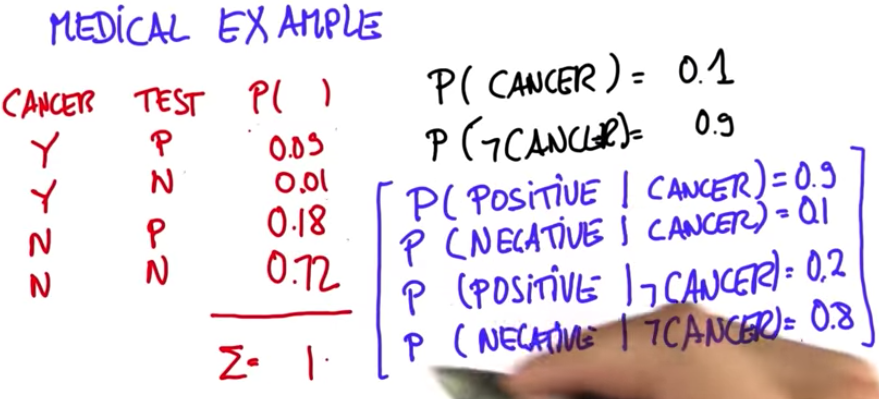 MEDICAL EXAMPLE
CANCER TEST P( )
Y P 0.09
Y N 0.01
N P 0.18
N N 0.72
Σ= 1.
P( CANCER ) = 0.1
P (¬CANCER)= 0.9
P( POSITIVE | CANCER) = 0.9
P (NEGATIVE | CANCER) = 0.1
P (POSITIVE | ¬CANCER) = 0.2
P (NEGATIVE | ¬CANCER) = 0.8